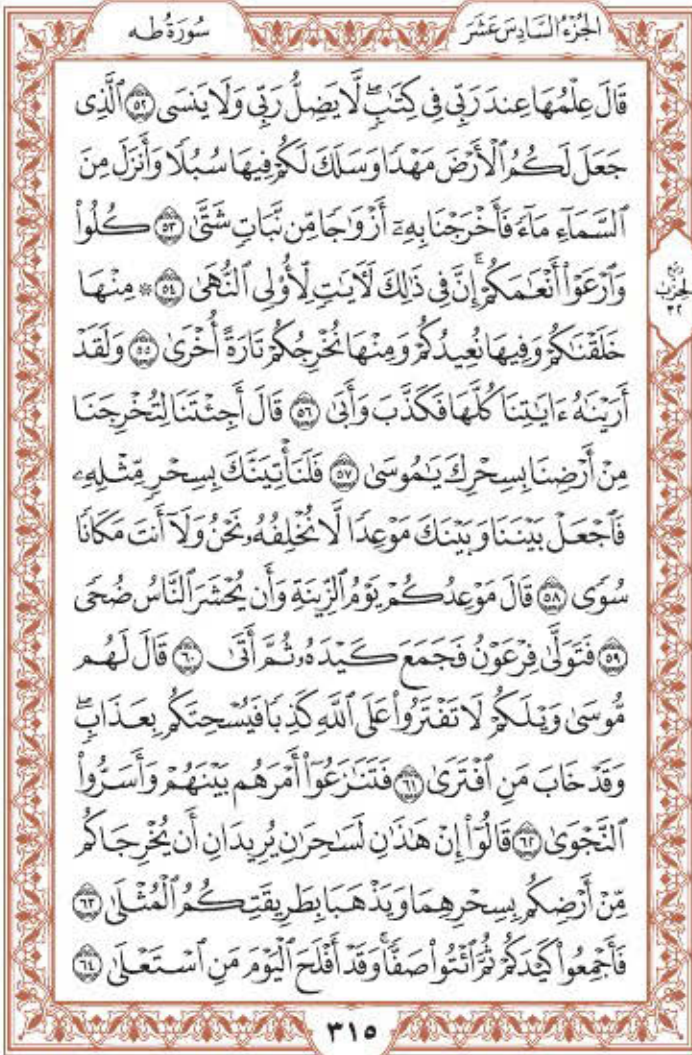 الجُزْءُ السَّادِسَ عَشَرَ
سُورَةُ طه
قَالَ عِلْمُهَا عِندَ رَبِّي فِي كِتَٰبٖۖ لَّا يَضِلُّ رَبِّي وَلَا يَنسَى ٥٢ ٱلَّذِي
جَعَلَ لَكُمُ ٱلۡأَرۡضَ مَهۡدٗا وَسَلَكَ لَكُمۡ فِيهَا سُبُلٗا وَأَنزَلَ مِنَ
ٱلسَّمَآءِ مَآءٗ فَأَخۡرَجۡنَا بِهِۦٓ أَزۡوَٰجٗا مِّن نَّبَاتٖ شَتَّىٰ ٥٣ كُلُواْ
وَٱرۡعَوۡاْ أَنۡعَٰمَكُمۡۚ إِنَّ فِي ذَٰلِكَ لَأٓيَٰتٖ لِّأُوْلِي ٱلنُّهَىٰ ٥٤ ۞ مِنۡهَا
رُبْعُ
الحِزْبِ
٣٢
خَلَقۡنَٰكُمۡ وَفِيهَا نُعِيدُكُمۡ وَمِنۡهَا نُخۡرِجُكُمۡ تَارَةً أُخۡرَىٰ ٥٥ وَلَقَدۡ
أَرَيۡنَٰهُ ءَايَٰتِنَا كُلَّهَا فَكَذَّبَ وَأَبَىٰ ٥٦ قَالَ أَجِئۡتَنَا لِتُخۡرِجَنَا
مِنۡ أَرۡضِنَا بِسِحۡرِكَ يَٰمُوسَىٰ ٥٧ فَلَنَأۡتِيَنَّكَ بِسِحۡرٖ مِّثۡلِهِۦ
فَٱجۡعَلۡ بَيۡنَنَا وَبَيۡنَكَ مَوۡعِدٗا لَّا نُخۡلِفُهُۥ نَحۡنُ وَلَآ أَنتَ مَكَانٗا
سُوٗى ٥٨ قَالَ مَوۡعِدُكُمۡ يَوۡمُ ٱلزِّينَةِ وَأَن يُحۡشَرَ ٱلنَّاسُ ضُحٗى
٥٩ فَتَوَلَّىٰ فِرۡعَوۡنُ فَجَمَعَ كَيۡدَهُۥ ثُمَّ أَتَىٰ ٦٠ قَالَ لَهُم
مُّوسَىٰ وَيۡلَكُمۡ لَا تَفۡتَرُواْ عَلَى ٱللَّهِ كَذِبٗا فَيُسۡحِتَكُم بِعَذَابٖۖ
وَقَدۡ خَابَ مَنِ ٱفۡتَرَىٰ ٦١ فَتَنَٰزَعُوٓاْ أَمۡرَهُم بَيۡنَهُمۡ وَأَسَرُّواْ
ٱلنَّجۡوَىٰ ٦٢ قَالُوٓاْ إِنۡ هَٰذَٰنِ لَسَٰحِرَٰنِ يُرِيدَانِ أَن يُخۡرِجَاكُم
مِّنۡ أَرۡضِكُم بِسِحۡرِهِمَا وَيَذۡهَبَا بِطَرِيقَتِكُمُ ٱلۡمُثۡلَىٰ ٦٣
فَأَجۡمِعُواْ كَيۡدَكُمۡ ثُمَّ ٱئۡتُواْ صَفّٗاۚ وَقَدۡ أَفۡلَحَ ٱلۡيَوۡمَ مَنِ ٱسۡتَعۡلَىٰ ٦٤
٣١٥